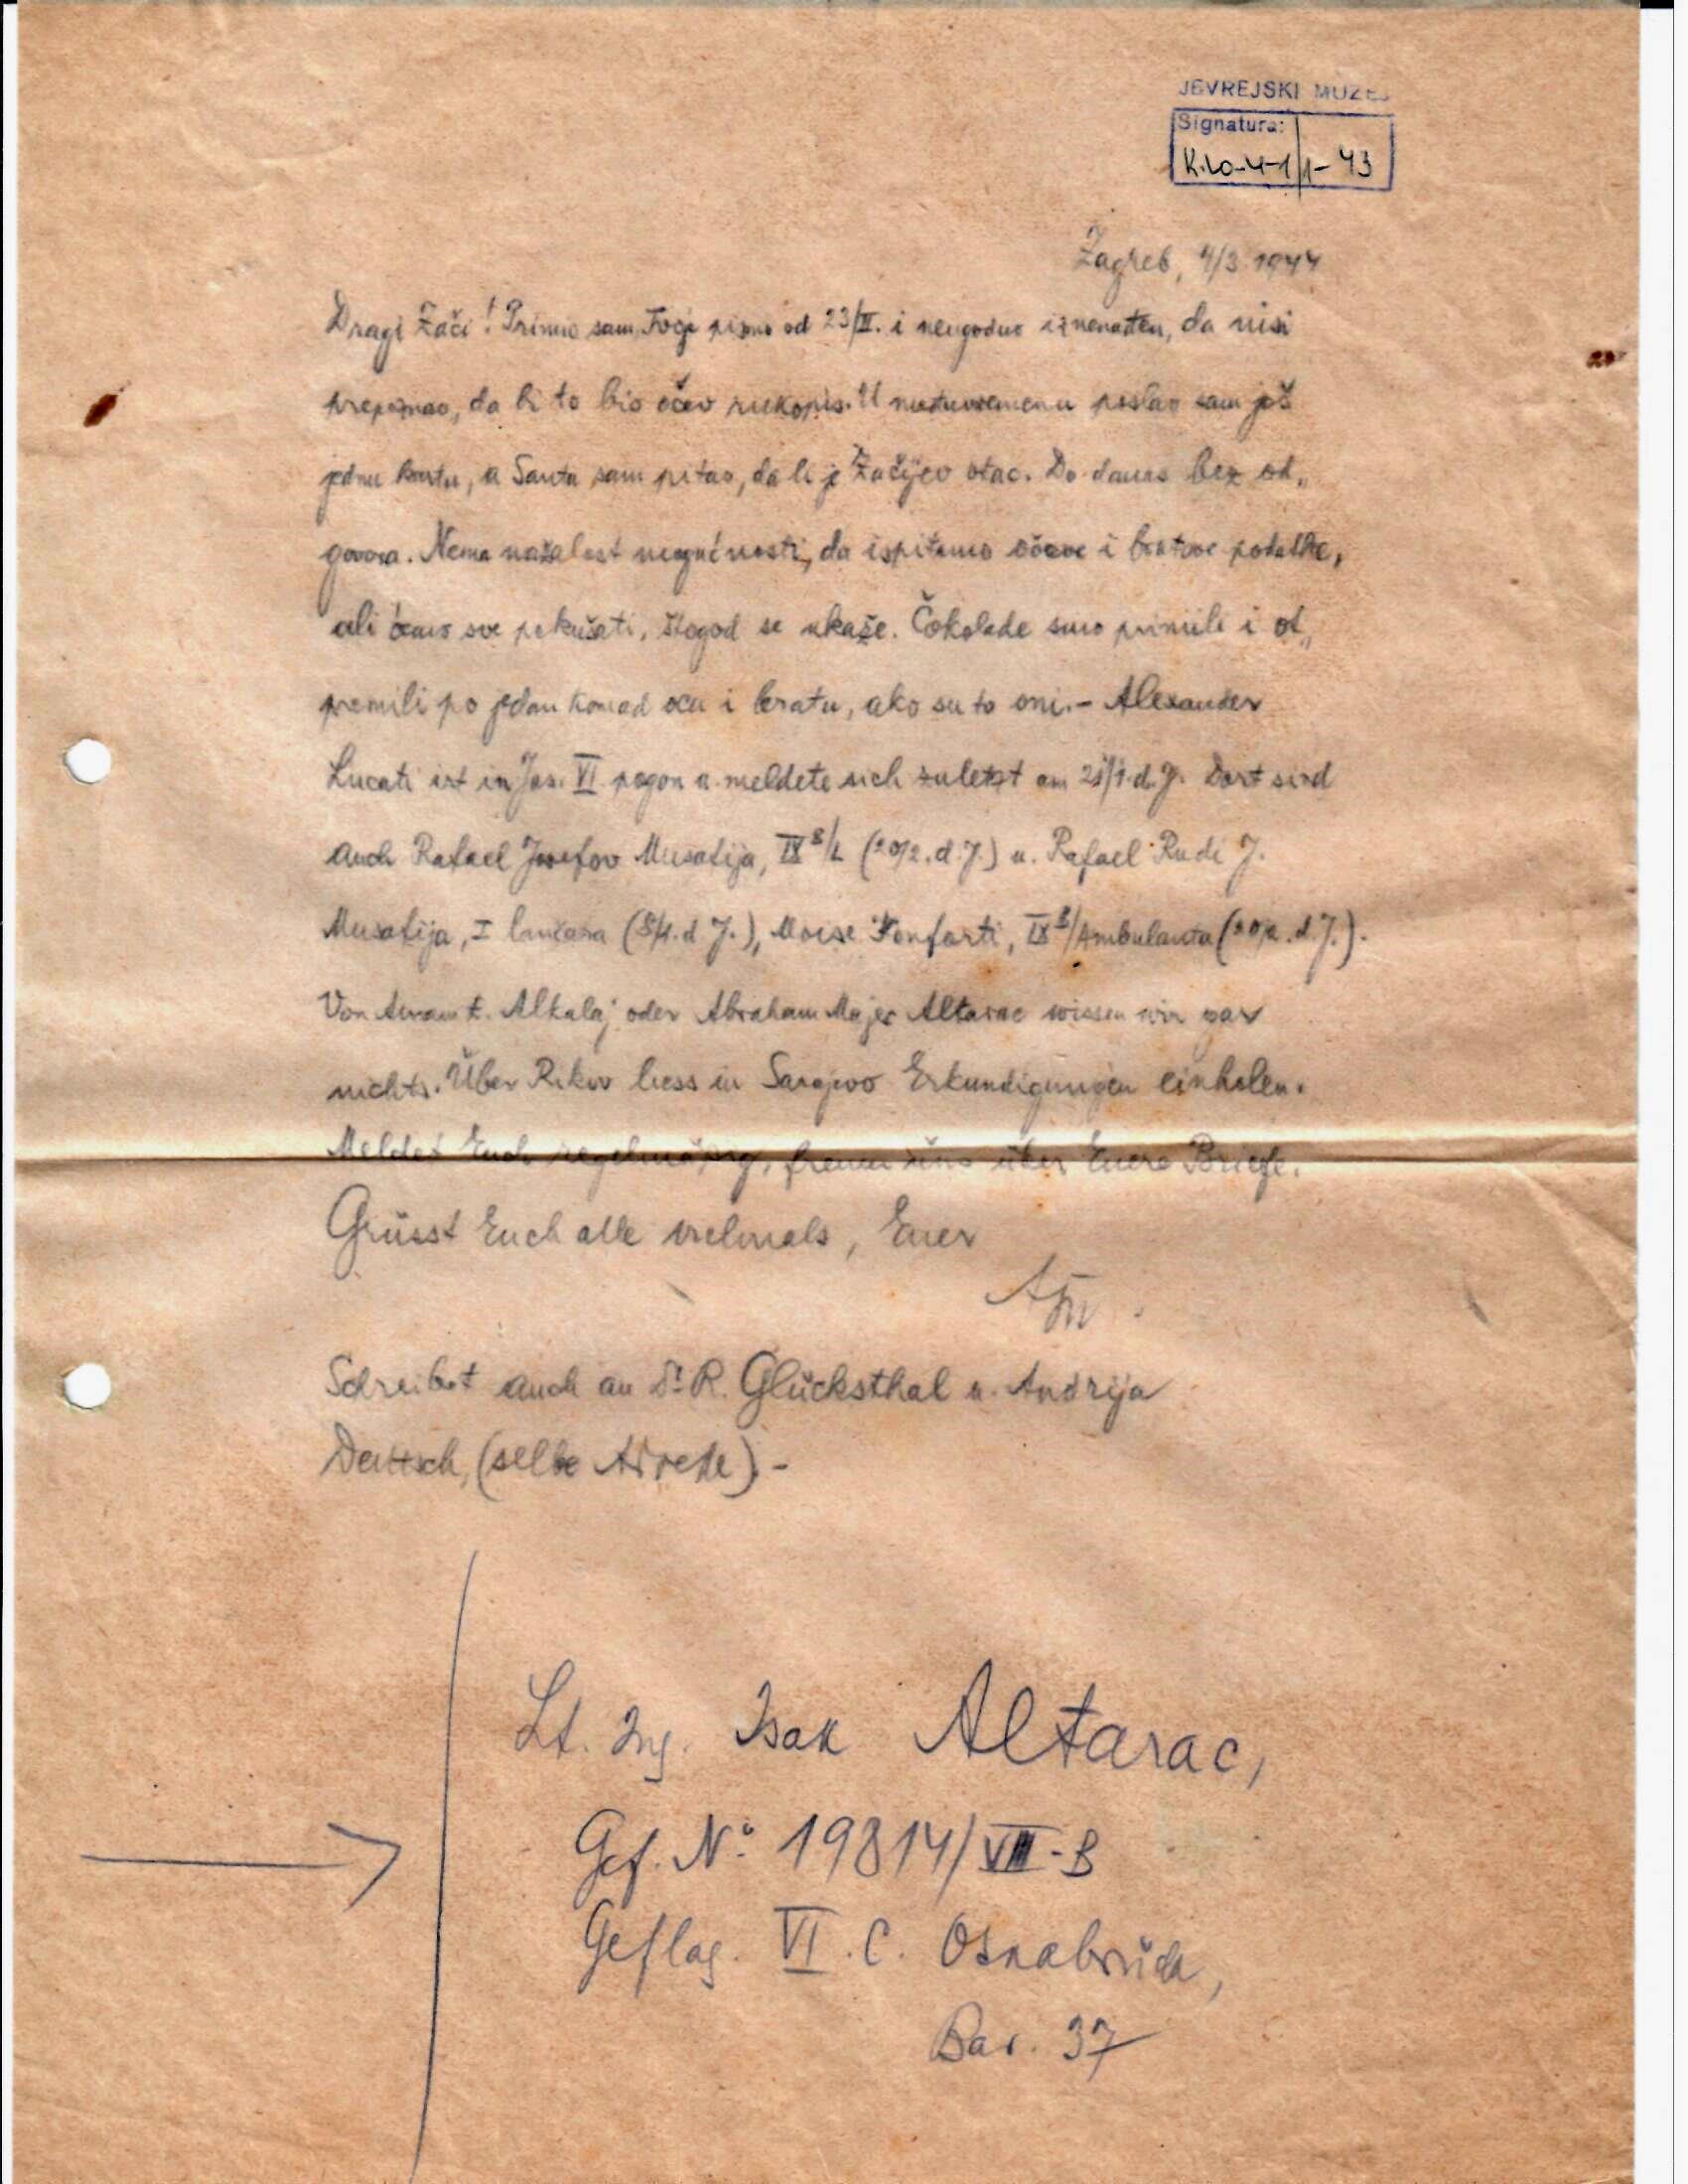 JEVREJSKI MUZEJ
Signatura:
K.20-4-1/1-43
Zagreb, 4/3 1944
Dragi Žači! Primio sam Tvoje pismo od 23/II. i neugodno iznenađen, da nisi
prepoznao, da bi to bio očev rukopis. U međuvremenu poslao sam još
jednu kartu, a Santa sam pitao, da li je Žačijev otac. Do danas bez od„
govora. Nema nažalost mogućnosti, da ispitamo očeve i bratove podatke,
ali ćemo sve pokušati, štogod se ukaže. Čokolade smo primili i ot„
premili po jedan komad ocu i bratu, ako su to oni.- Alexander
Lucati ist in Jas. VI pogon u. meldete sich zuletzt am d. J. Dort sind
auch Rafael Josefov Musafija, IX B/L (20/2. d. J.) u. Rafael Rudi J.
Musafija, I lančara (d. J.), Moise Konforti, IX B/Ambulanta (20/2. d. J.).
Von Avram Alkalaj oder Abraham Majer Altarac wissen wir gar
nichts. Über Rikov liess in Sarajevo Erkundigungen einholen.
Meldet Euch regelmässig, freuen uns über Euere Briefe.
Grüsst Euch alle vielmals, Euer
Schreibet auch an Dr R. Glücksthal u. Andrija
Deutsch, (selbe Adresse).-
Lt. Ing. Isak Altarac,
Gef. No: 19814/VIII-B
Geflag. VI. C. Osnabrück,
Bar. 37